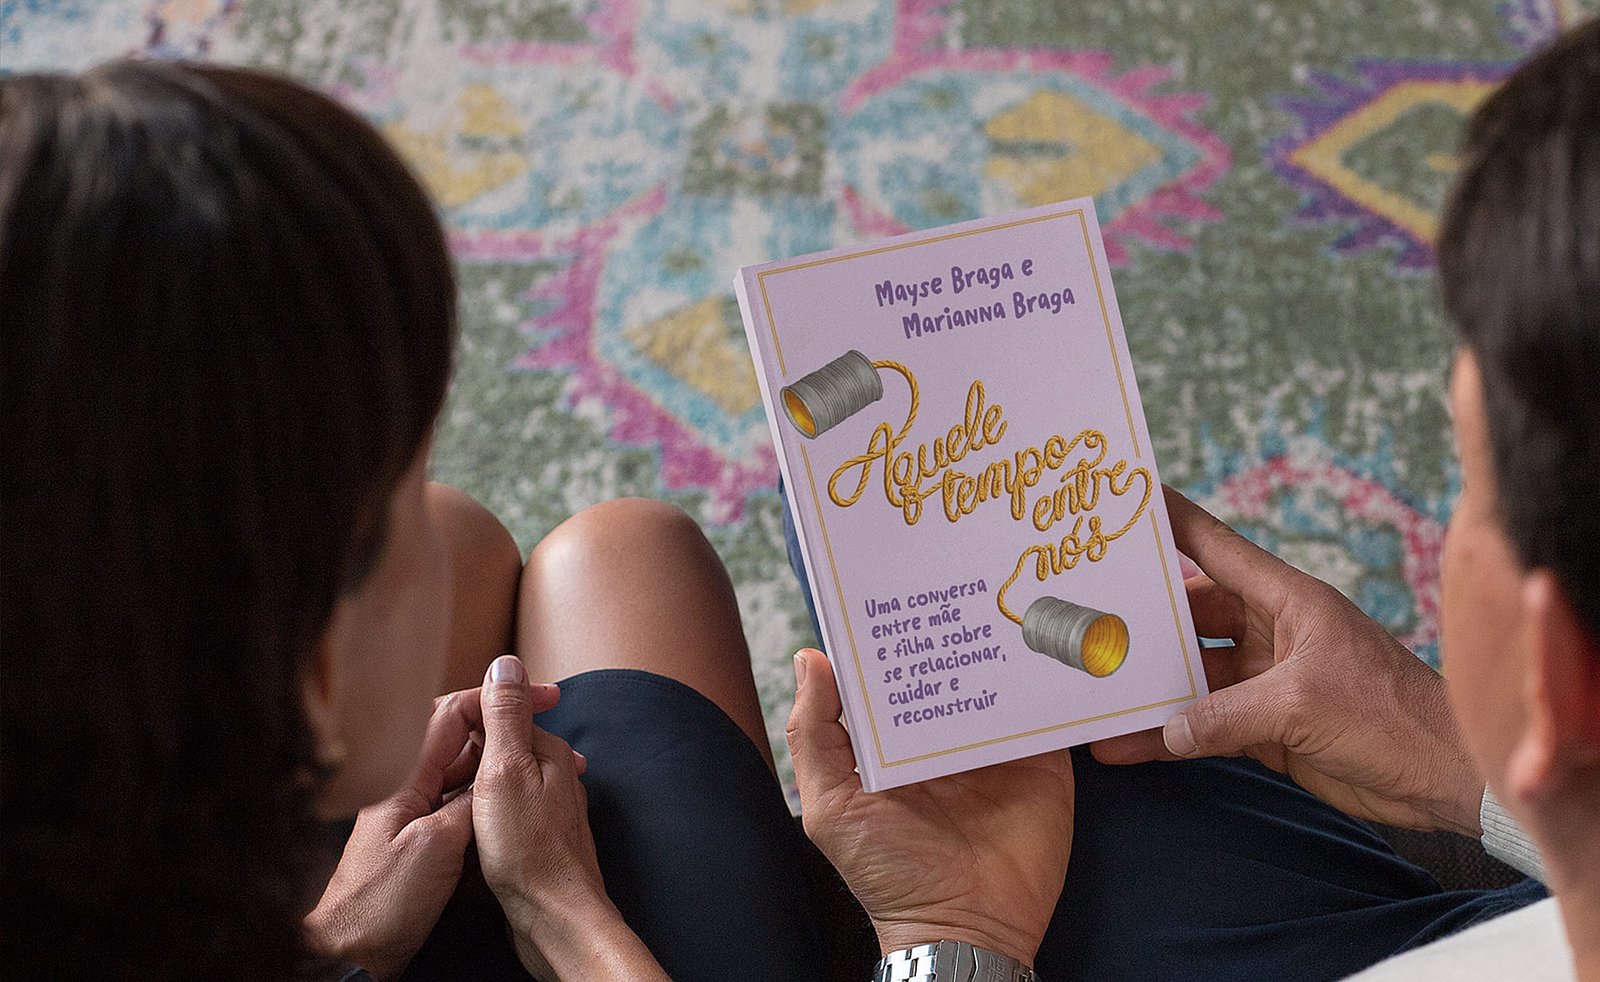 Mayse Braga e
Marianna Braga
Aquele
tempo
entre
nós
Uma conversa
entre mãe
e filha sobre
se relacionar,
cuidar e
reconstruir